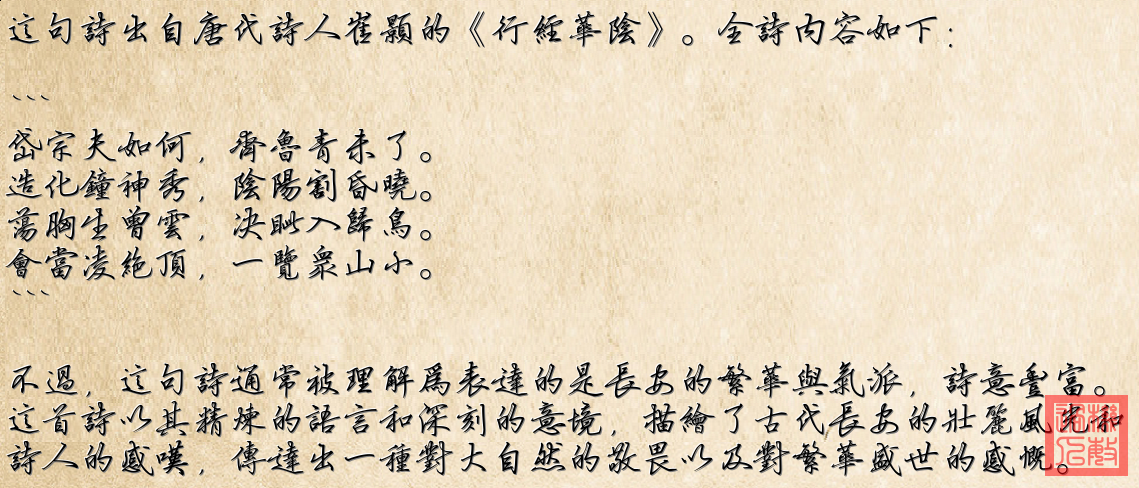 這句詩出自唐代詩人崔顥的《行經華陰》。全詩內容如下：
```
岱宗夫如何，齊魯青未了。
造化鐘神秀，陰陽割昏曉。
蕩胸生曾雲，決眥入歸鳥。
會當凌絕頂，一覽眾山小。
```
不過，這句詩通常被理解為表達的是長安的繁華與氣派，詩意豐富。
這首詩以其精煉的語言和深刻的意境，描繪了古代長安的壯麗風光和
詩人的感嘆，傳達出一種對大自然的敬畏以及對繁華盛世的感慨。